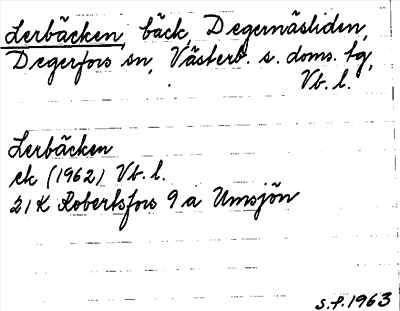 Lerbäcken, bäck, Degernäsliden,
Degerfors sn, Västerb. s. doms. tg,
Vb. l.
Lerbäcken
ek (1962) Vb. l.
21K Robertsfors 9 a Umsjön
S.P. 1963